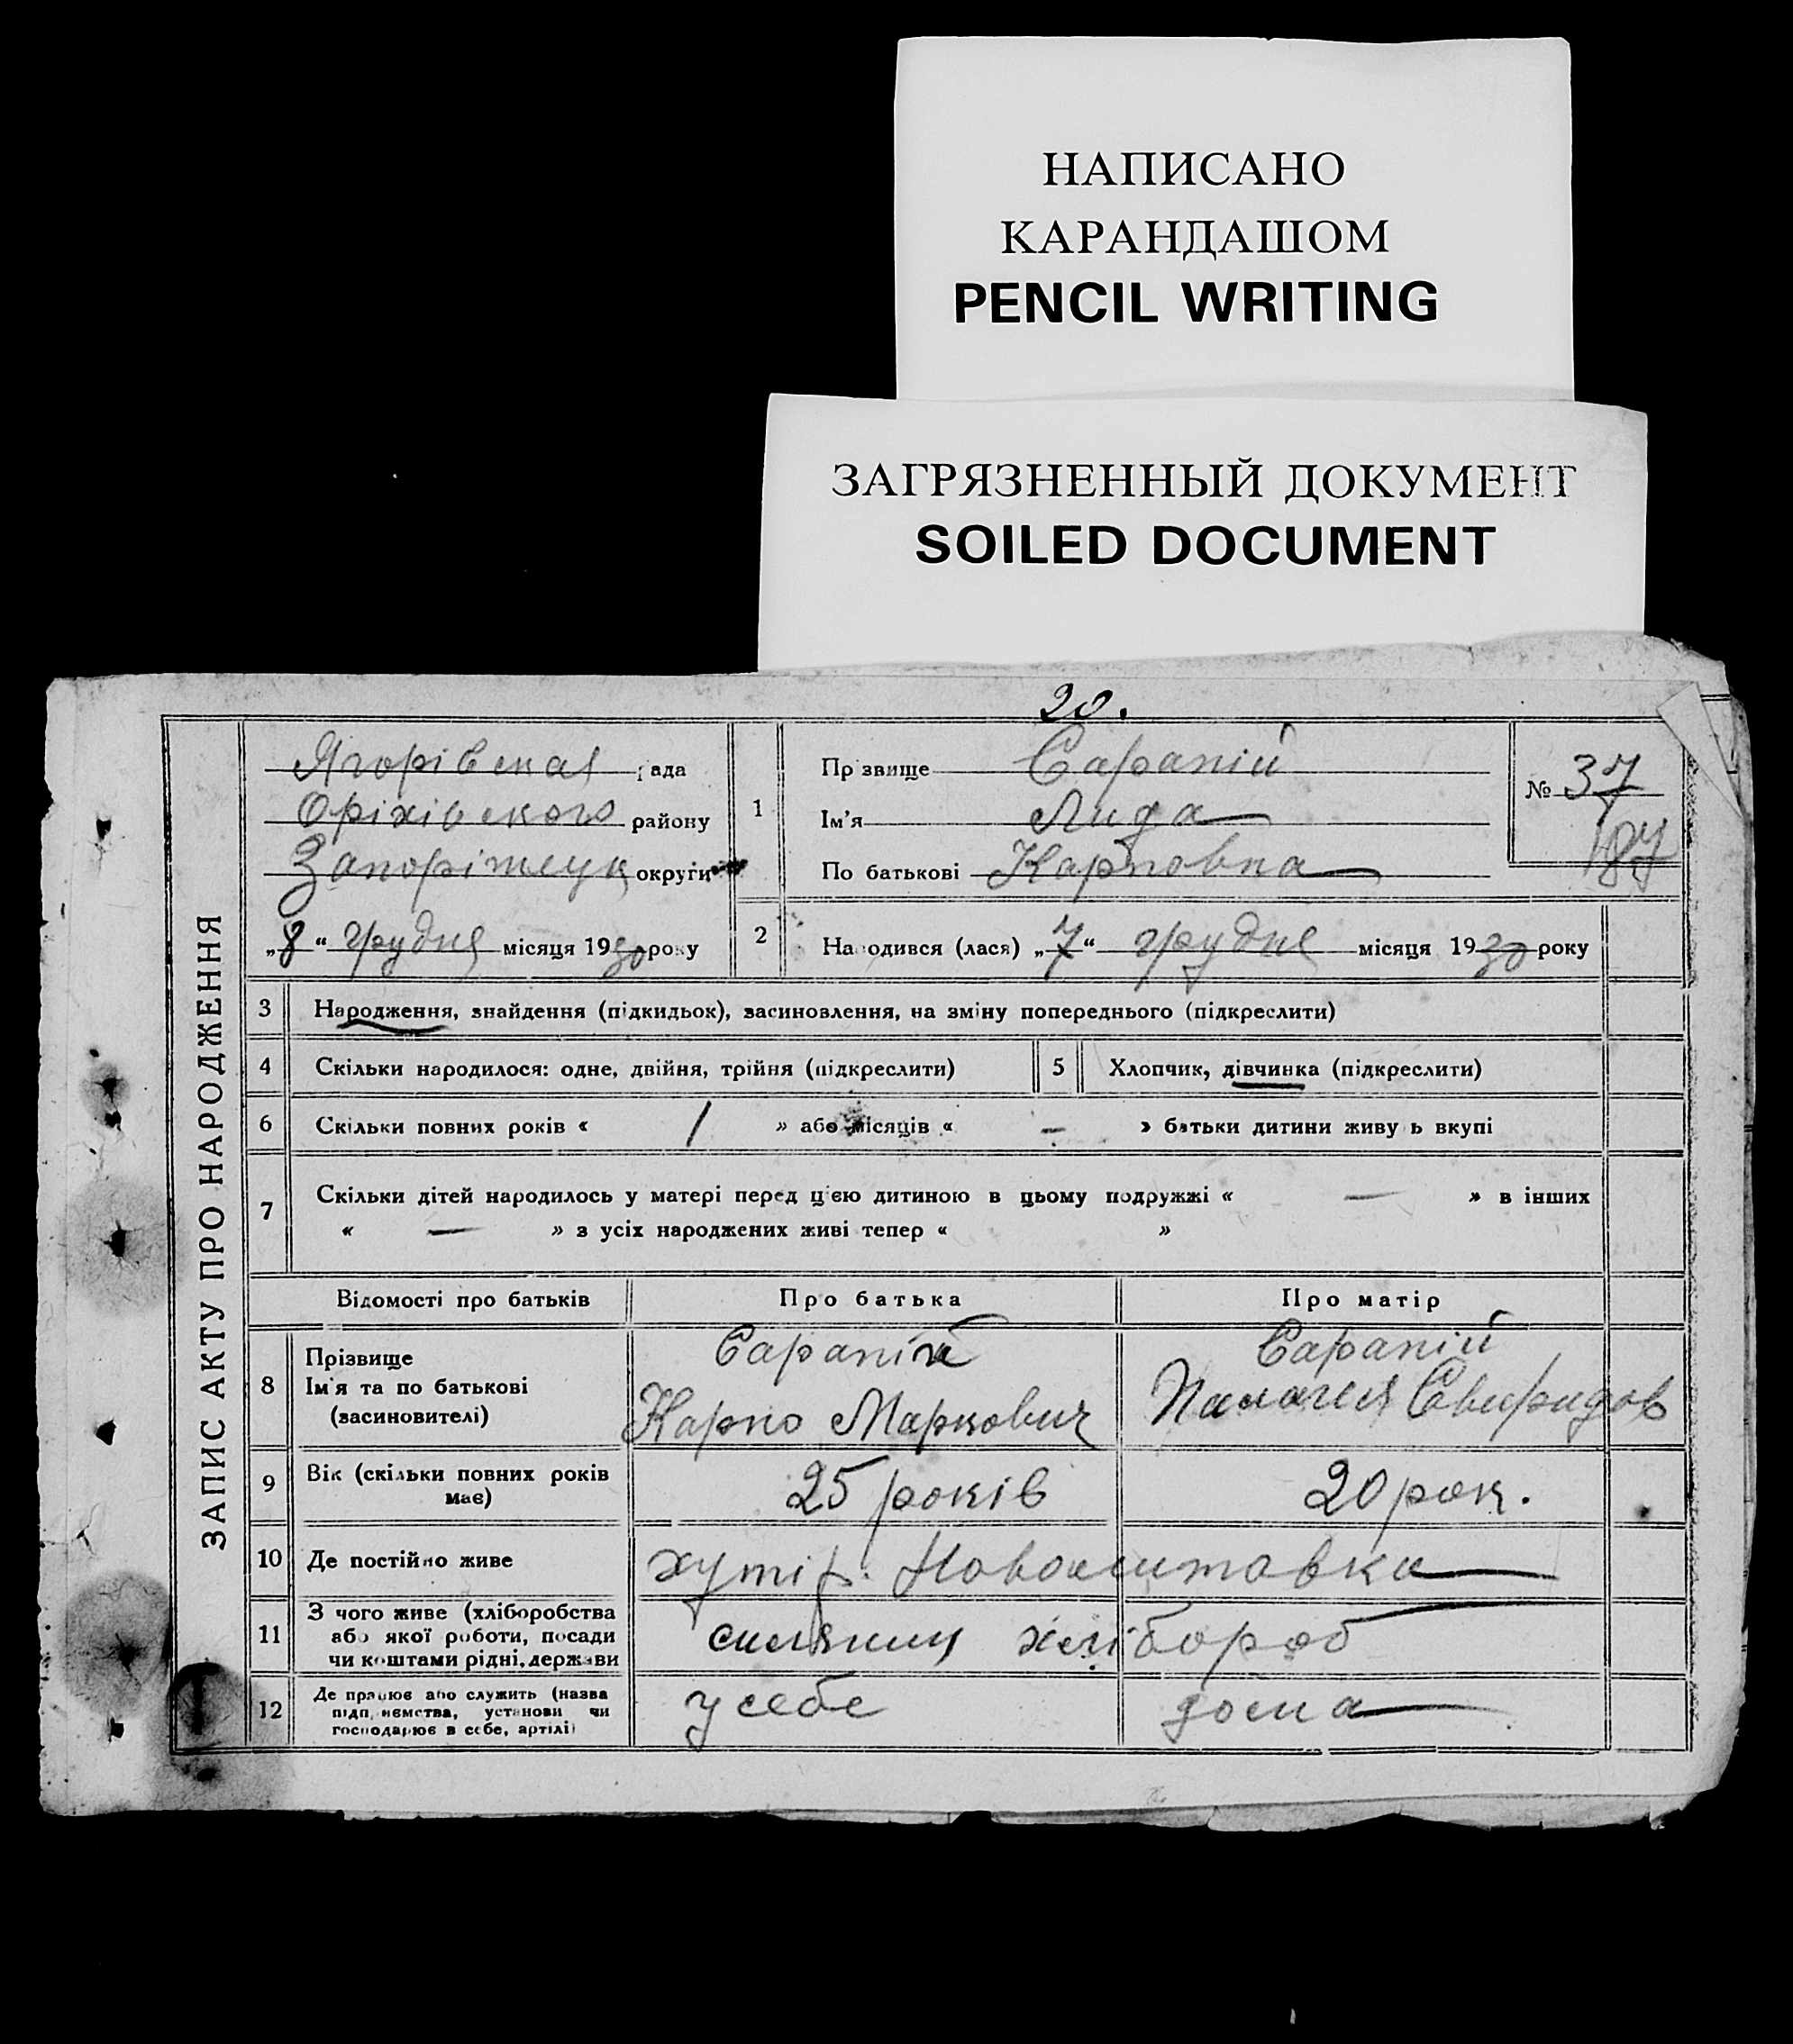 НАПИСАНО
КАРАНДАШОМ
PENCIL WRITING
ЗАГРЯЗНЕННЫЙ ДОКУМЕНТ
SOILED DOCUMENT
20.
ЗАПИС АКТУ ПРО НАРОДЖЕННЯ
Ягорівская рада
Оріхівского району
округи
„8“ грудня місяця 1930 року
1
Прізвище Сарапій
Ім'я Лида
По батькові Карповна
№ 37
2
Народився (лася) „7“ грудня місяця 1930 року
3 Народження, знайдення (підкидьок), засиновлення, на зміну попереднього (підкреслити)
4 Скільки народилося: одне, двійня, трійня (підкреслити) 5 Хлопчик, дівчинка (підкреслити)
6 Скільки повних років « / » або місяців « - » батьки дитини живуть вкупі
7 Скільки дітей народилось у матері перед цією дитиною в цьому подружжі « — » в інших
« — » з усіх народжених живі тепер « »
Відомості про батьків Про батька Про матір
8 Прізвище
Ім'я та по батькові
(засиновителі)
Сарапій
Карпо Маркович
Сарапій
Палагея Свиридов
9 Вік (скільки повних років
має)
25 років 20 рок.
10 Де постійно живе хутір. Новоселитовка
11 З чого живе (хліборобства
або якої роботи, посади
чи коштами рідні, держави
хлібороб
12 Де працює або служить (назва
підприємства, установи чи
господарює в себе, артілі)
у себе дома